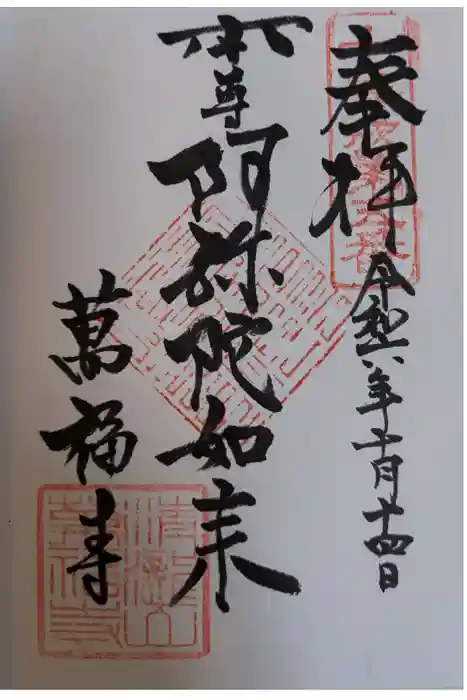 奉拝
令和六年十月廿四日
本尊
阿弥陀如来
萬福寺